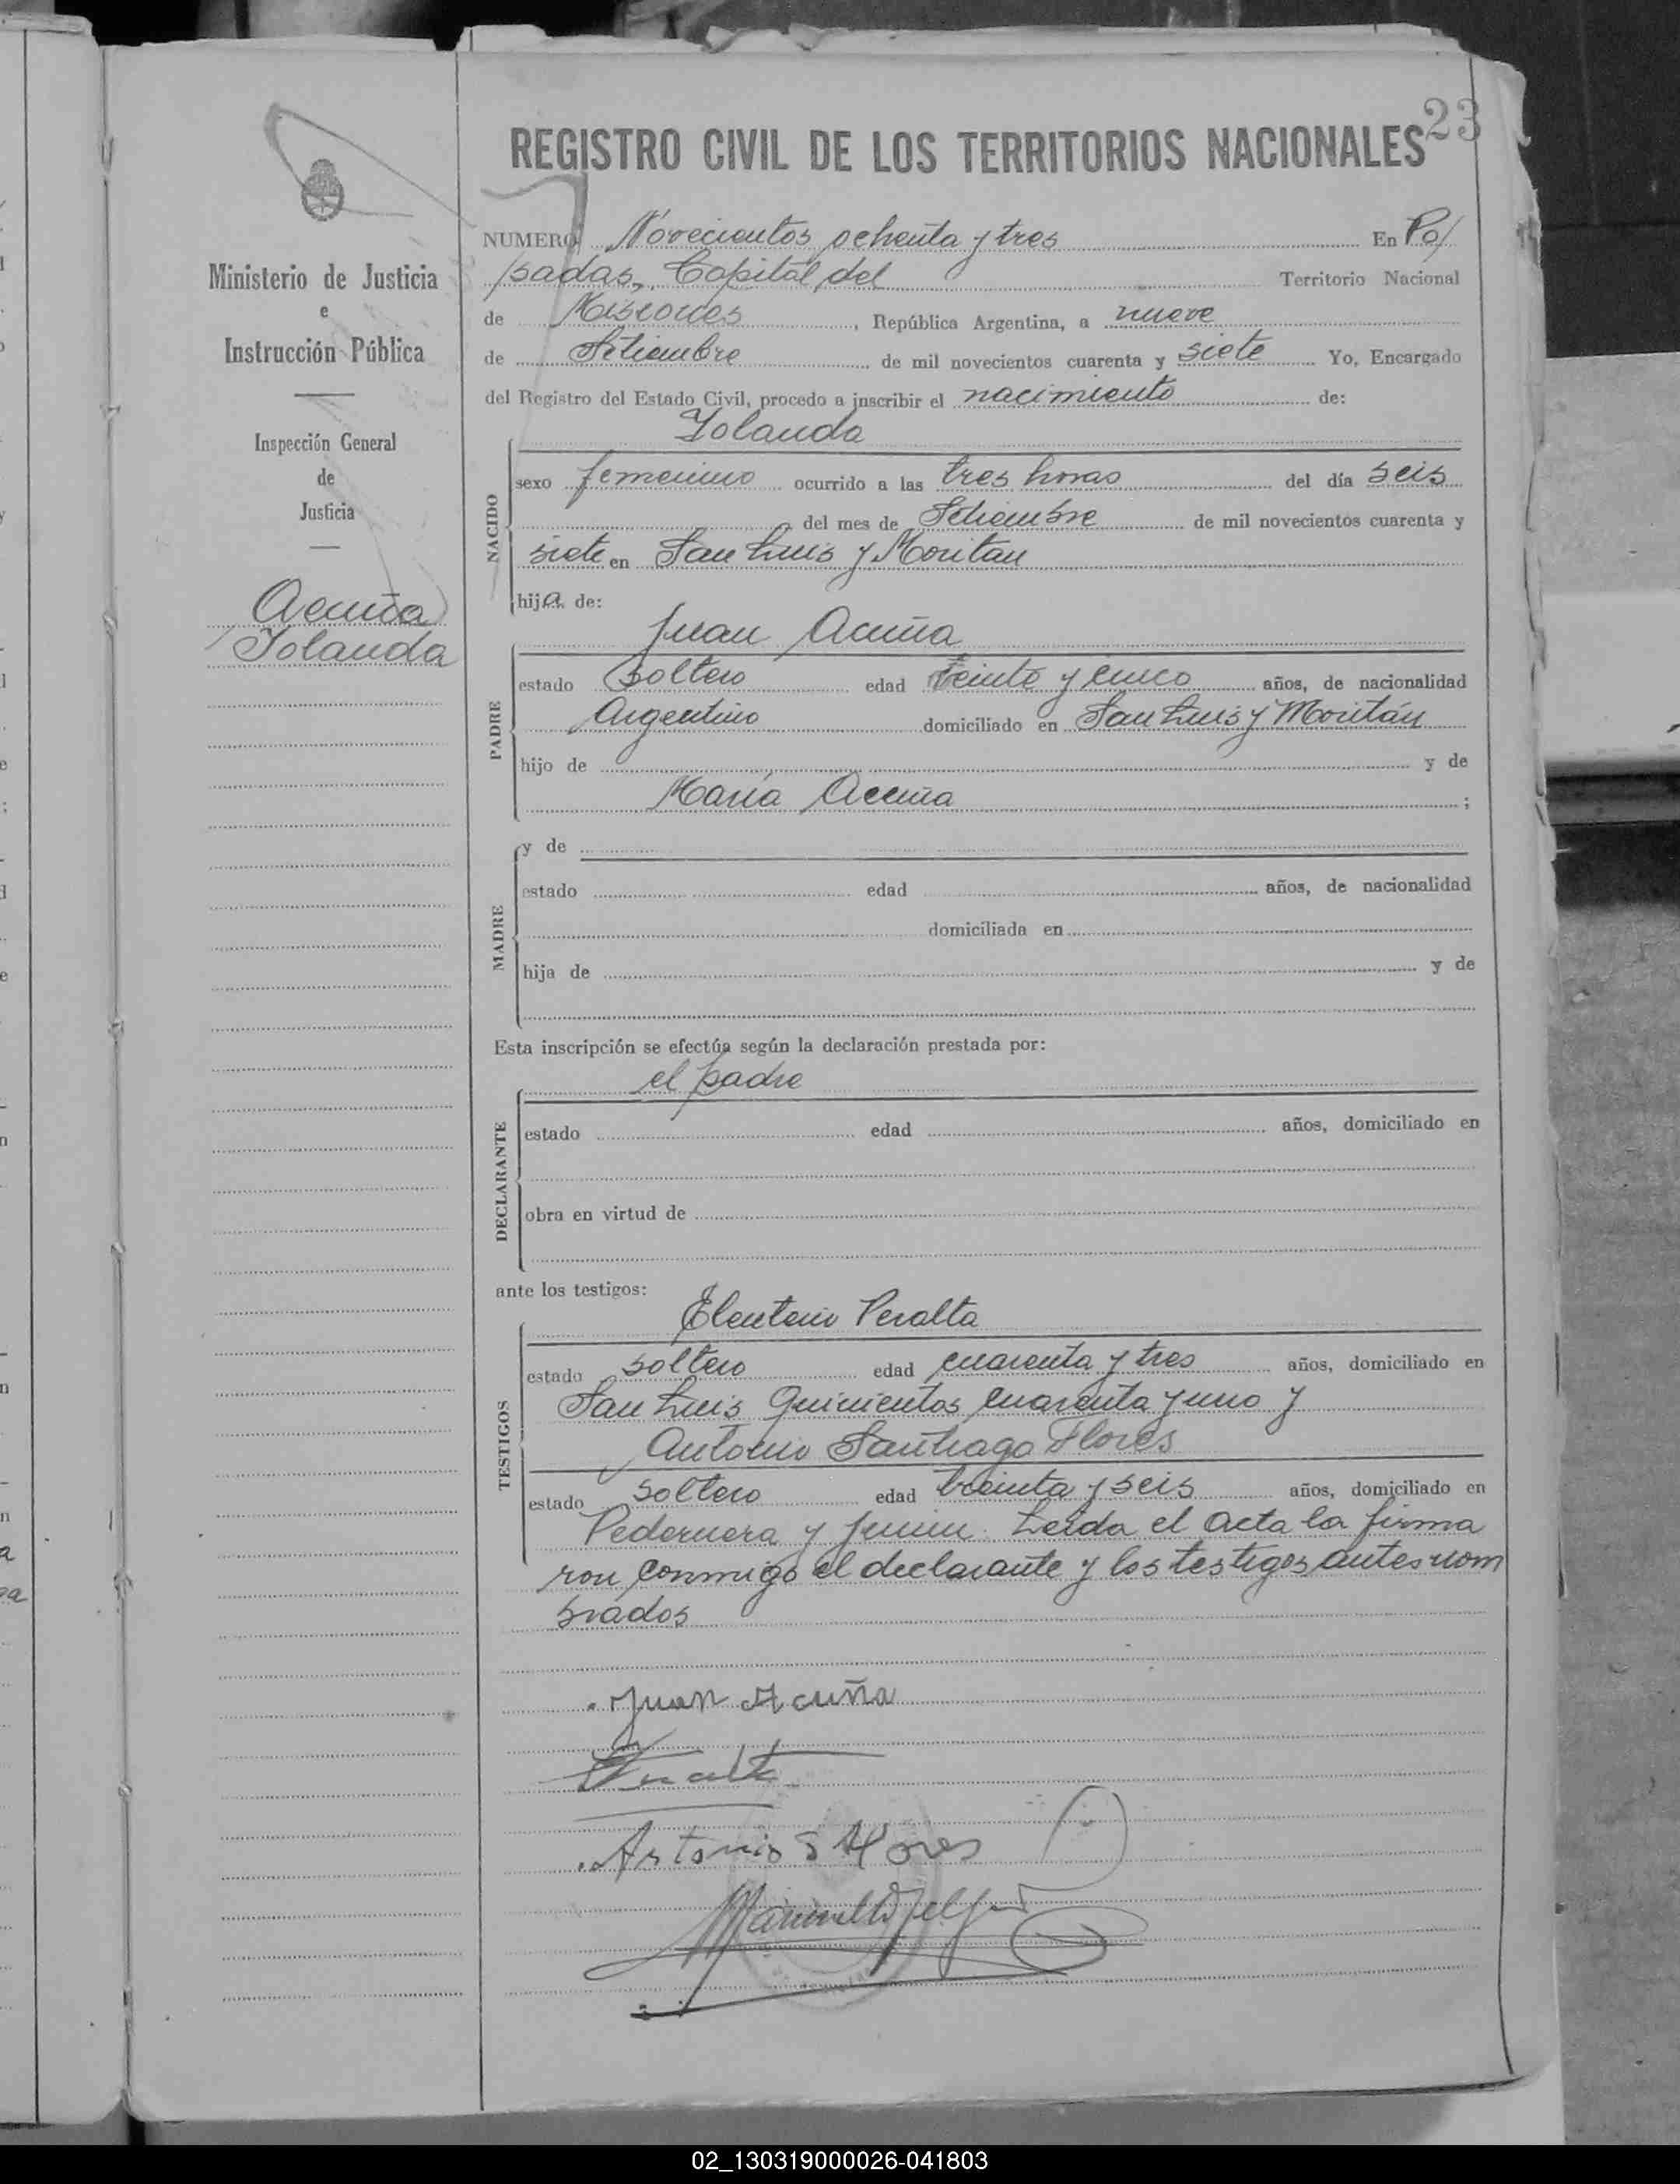 23
REGISTRO CIVIL DE LOS TERRITORIOS NACIONALES
NUMERO Novecientos ochenta y tres En Po/
/sadas, Capital del Territorio Nacional
de Misiones, República Argentina, a nueve
de Setiembre de mil novecientos cuarenta y siete Yo, Encargado
del Registro del Estado Civil, procedo a inscribir el nacimiento de:
Yolanda
NACIDO
sexo femenino ocurrido a las tres horas del día seis
del mes de Setiembre de mil novecientos cuarenta y
siete en San Luis y Moritan
hija de:
Juan Acuña
PADRE
estado soltero edad veinte y cinco años, de nacionalidad
Argentino domiciliado en San Luis y Moritán
hijo de y de
María Acuña ;
MADRE
y de
estado edad años, de nacionalidad
domiciliada en
hija de y de
Esta inscripción se efectúa según la declaración prestada por:
el padre
DECLARANTE
estado edad años, domiciliado en
obra en virtud de
ante los testigos:
Eleuterio Peralta
TESTIGOS
estado soltero edad cuarenta y tres años, domiciliado en
San Luis Quinientos cuarenta y uno y
Antonio Santiago Flores
estado soltero edad treinta y seis años, domiciliado en
Pedernera y Junin. Leída el acta la firma
ron conmigo el declarante y los testigos antes nom
brados
Juan Acuña
Antonio S Flores
Ministerio de Justicia
e
Instrucción Pública
Inspección General
de
Justicia
Acuña
Yolanda
02_130319000026-041803